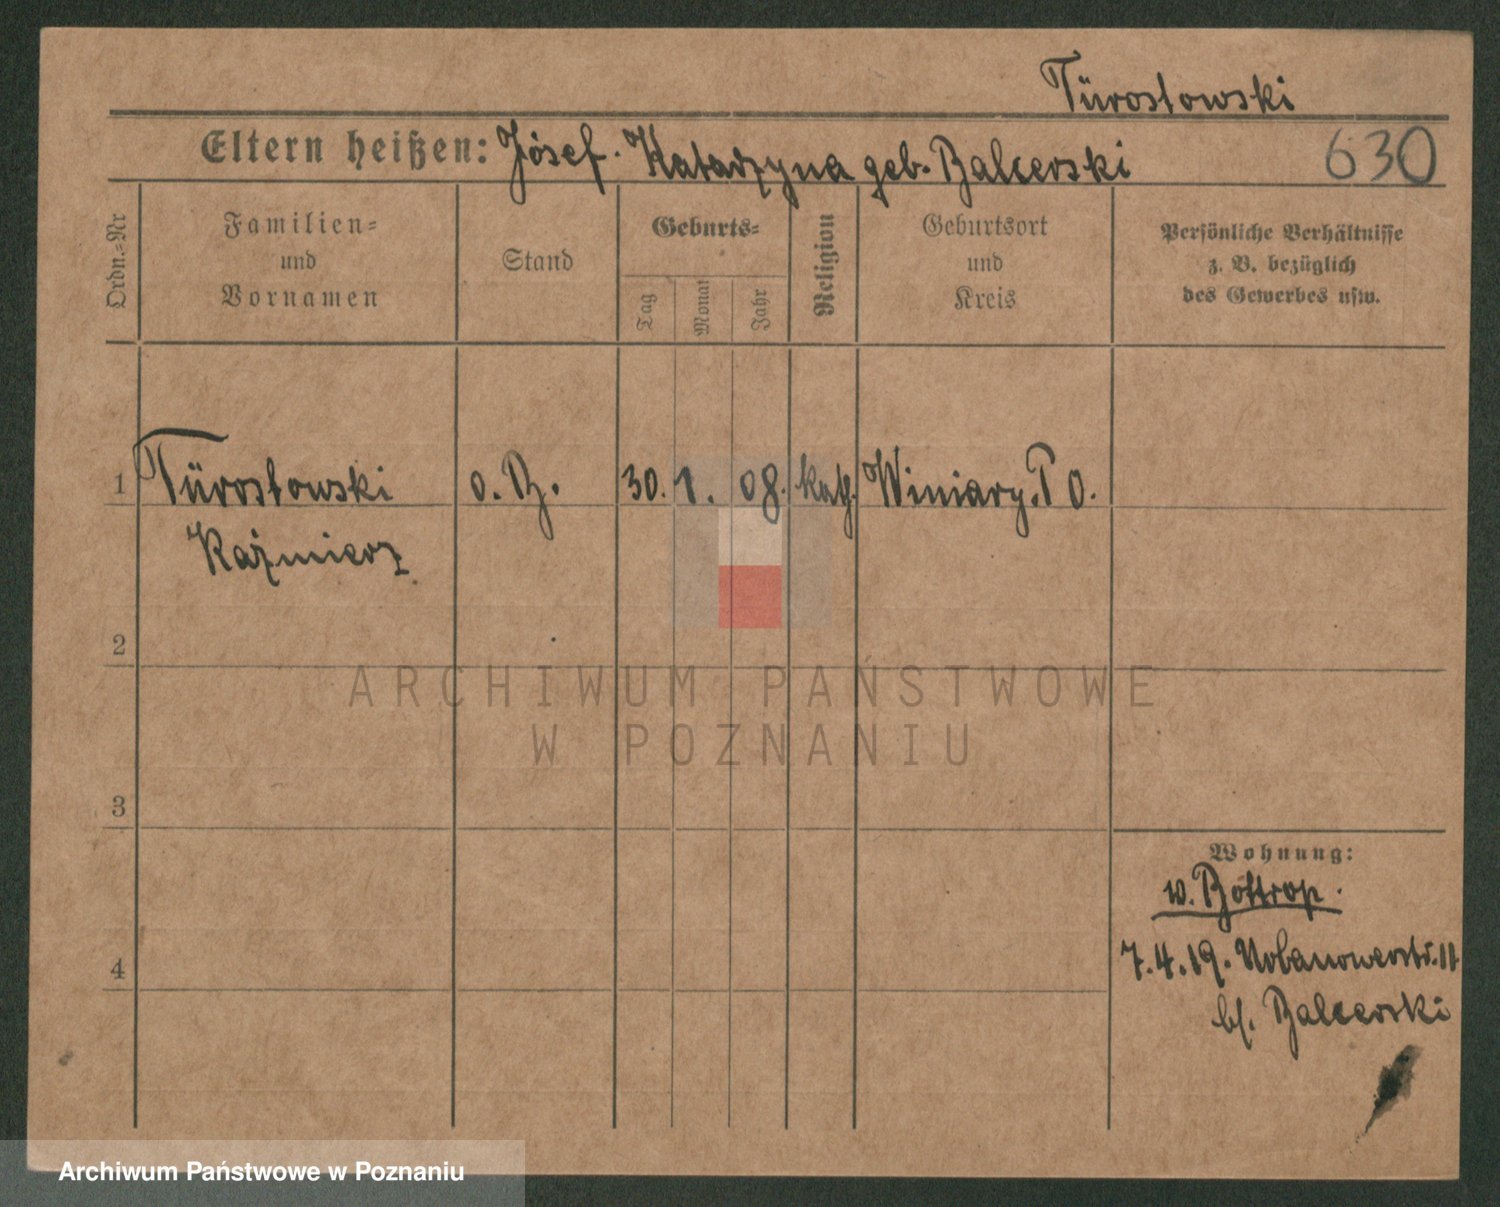 Türostowski
Eltern heißen: Jósef. Katarzyna geb. Balcerski
630
Ordn.-Nr
Familien-
und
Vornamen
Stand
Geburts-
Tag
Monat
Jahr
Religion
Geburtsort
und
Kreis
Persönliche Verhältnisse
z. B. bezüglich
des Gewerbes usw.
1 Türostowski o. B. 30. 1. 08. kath. Winiary. P O.
Kaźmierz
2
ARCHIWUM PAŃSTWOWE
W POZNANIU
3
Wohnung:
w. Bottrop.
4
7.4.19. Urbanowerstr. 11
bf. Balcerski
Archiwum Państwowe w Poznaniu